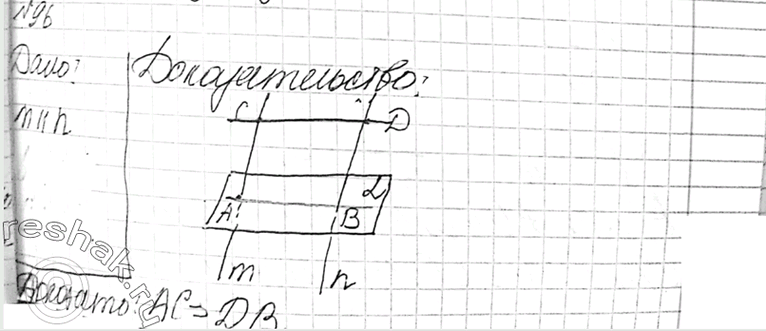 №96
Дано:
Доказательство:
m || n
C
D
α
A
B
m
n
Доказать: AC = DB
reshak.ru